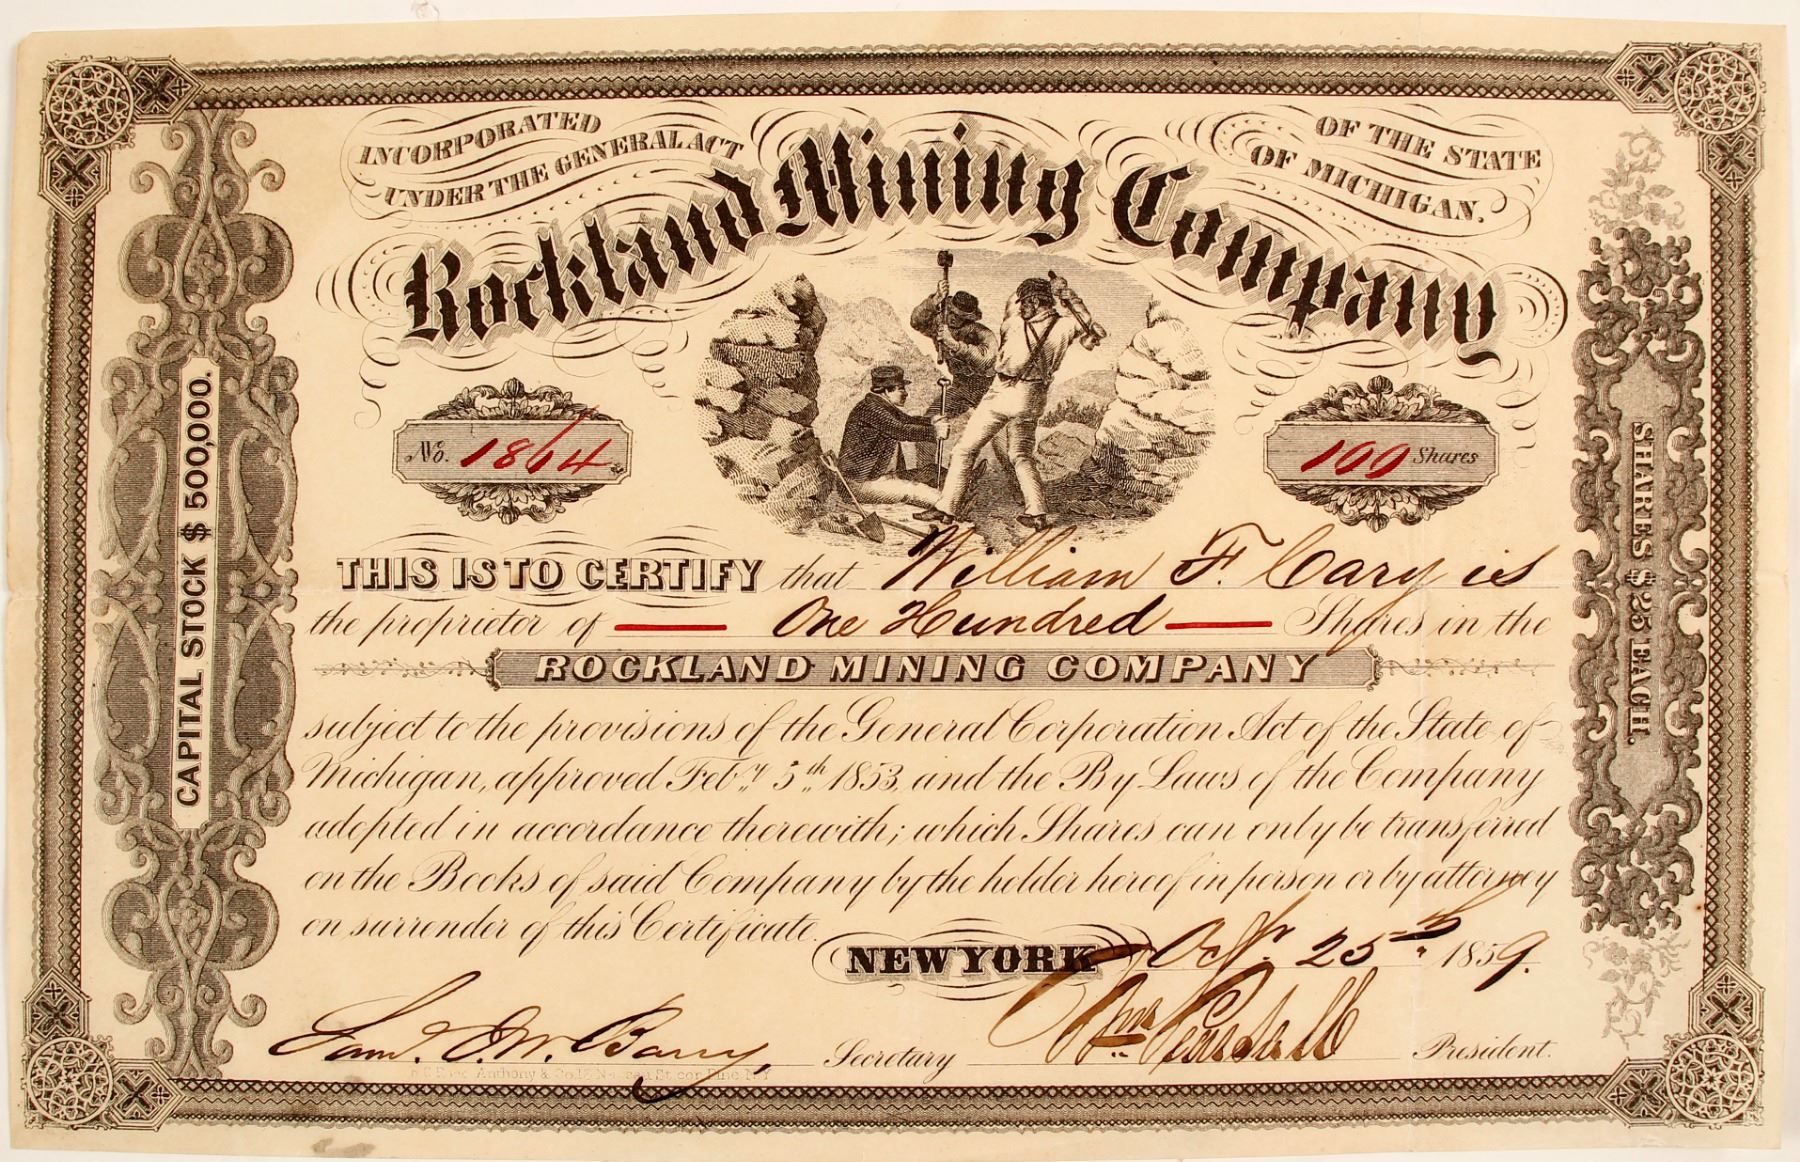 INCORPORATED
UNDER THE GENERAL ACT
OF THE STATE
OF MICHIGAN.
Rockland Mining Company
No. 1864
100 Shares
CAPITAL STOCK $500,000.
SHARES $25 EACH.
THIS IS TO CERTIFY that William F. Cary is
the proprietor of One Hundred Shares in the
ROCKLAND MINING COMPANY
subject to the provisions of the General Corporation Act of the State of
Michigan, approved Feby. 5th 1853, and the By Laws of the Company
adopted in accordance therewith; which Shares can only be transferred
on the Books of said Company by the holder hereof in person or by attorney
on surrender of this Certificate.
NEW YORK Octr. 25th 1859.
Saml. J. W. Barry, Secretary
Wm President.
Anthony & Co. Nassau St. cor Pine N.Y.